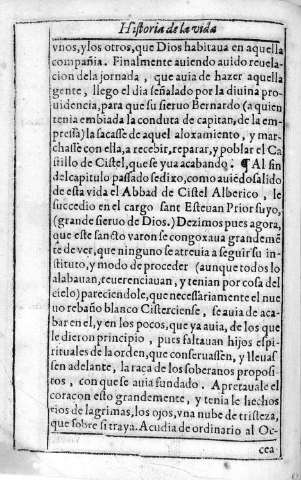 Historia de la vida
vnos, y los otros, que Dios habitaua en aquella
compañia. Finalmente auiendo auido reuela-
cion dela jornada, que auia de hazer aquella
gente, llego el dia señalado por la diuina pro-
uidencia, para que su sieruo Bernardo (a quien
tenia embiada la conduta de capitan, de la em-
pressa) la sacasse de aquel aloxamiento, y mar-
chasse con ella, a recebir, reparar, y poblar el Ca-
stillo de Cistel, que se yua acabando. ¶ Al fin
del capitulo passado se dixo, como auiēdo salido
de esta vida el Abbad de Cistel Alberico, le
succedio en el cargo sant Esteuan Prior suyo,
(grande sieruo de Dios.) Dezimos pues agora,
que este sancto varon se congoxaua grandemē-
te de ver, que ninguno se atreuia a seguir su in-
stituto, y modo de proceder (aunque todos lo
alabauan, reuerenciauan, y tenian por cosa del
cielo) pareciendole, que necessariamente el nue
uo rebaño blanco Cisterciense, se auia de aca-
bar en el, y en los pocos, que ya auia, de los que
le dieron principio, pues faltauan hijos espi-
rituales de la orden, que conseruassen, y lleuas
sen adelante, la raça de los soberanos proposi-
tos, con que se auia fundado. Apretauale el
coraçon esto grandemente, y tenia le hechos
rios de lagrimas, los ojos, vna nube de tristeza,
que sobre si traya. Acudia de ordinario al Oc-
cea